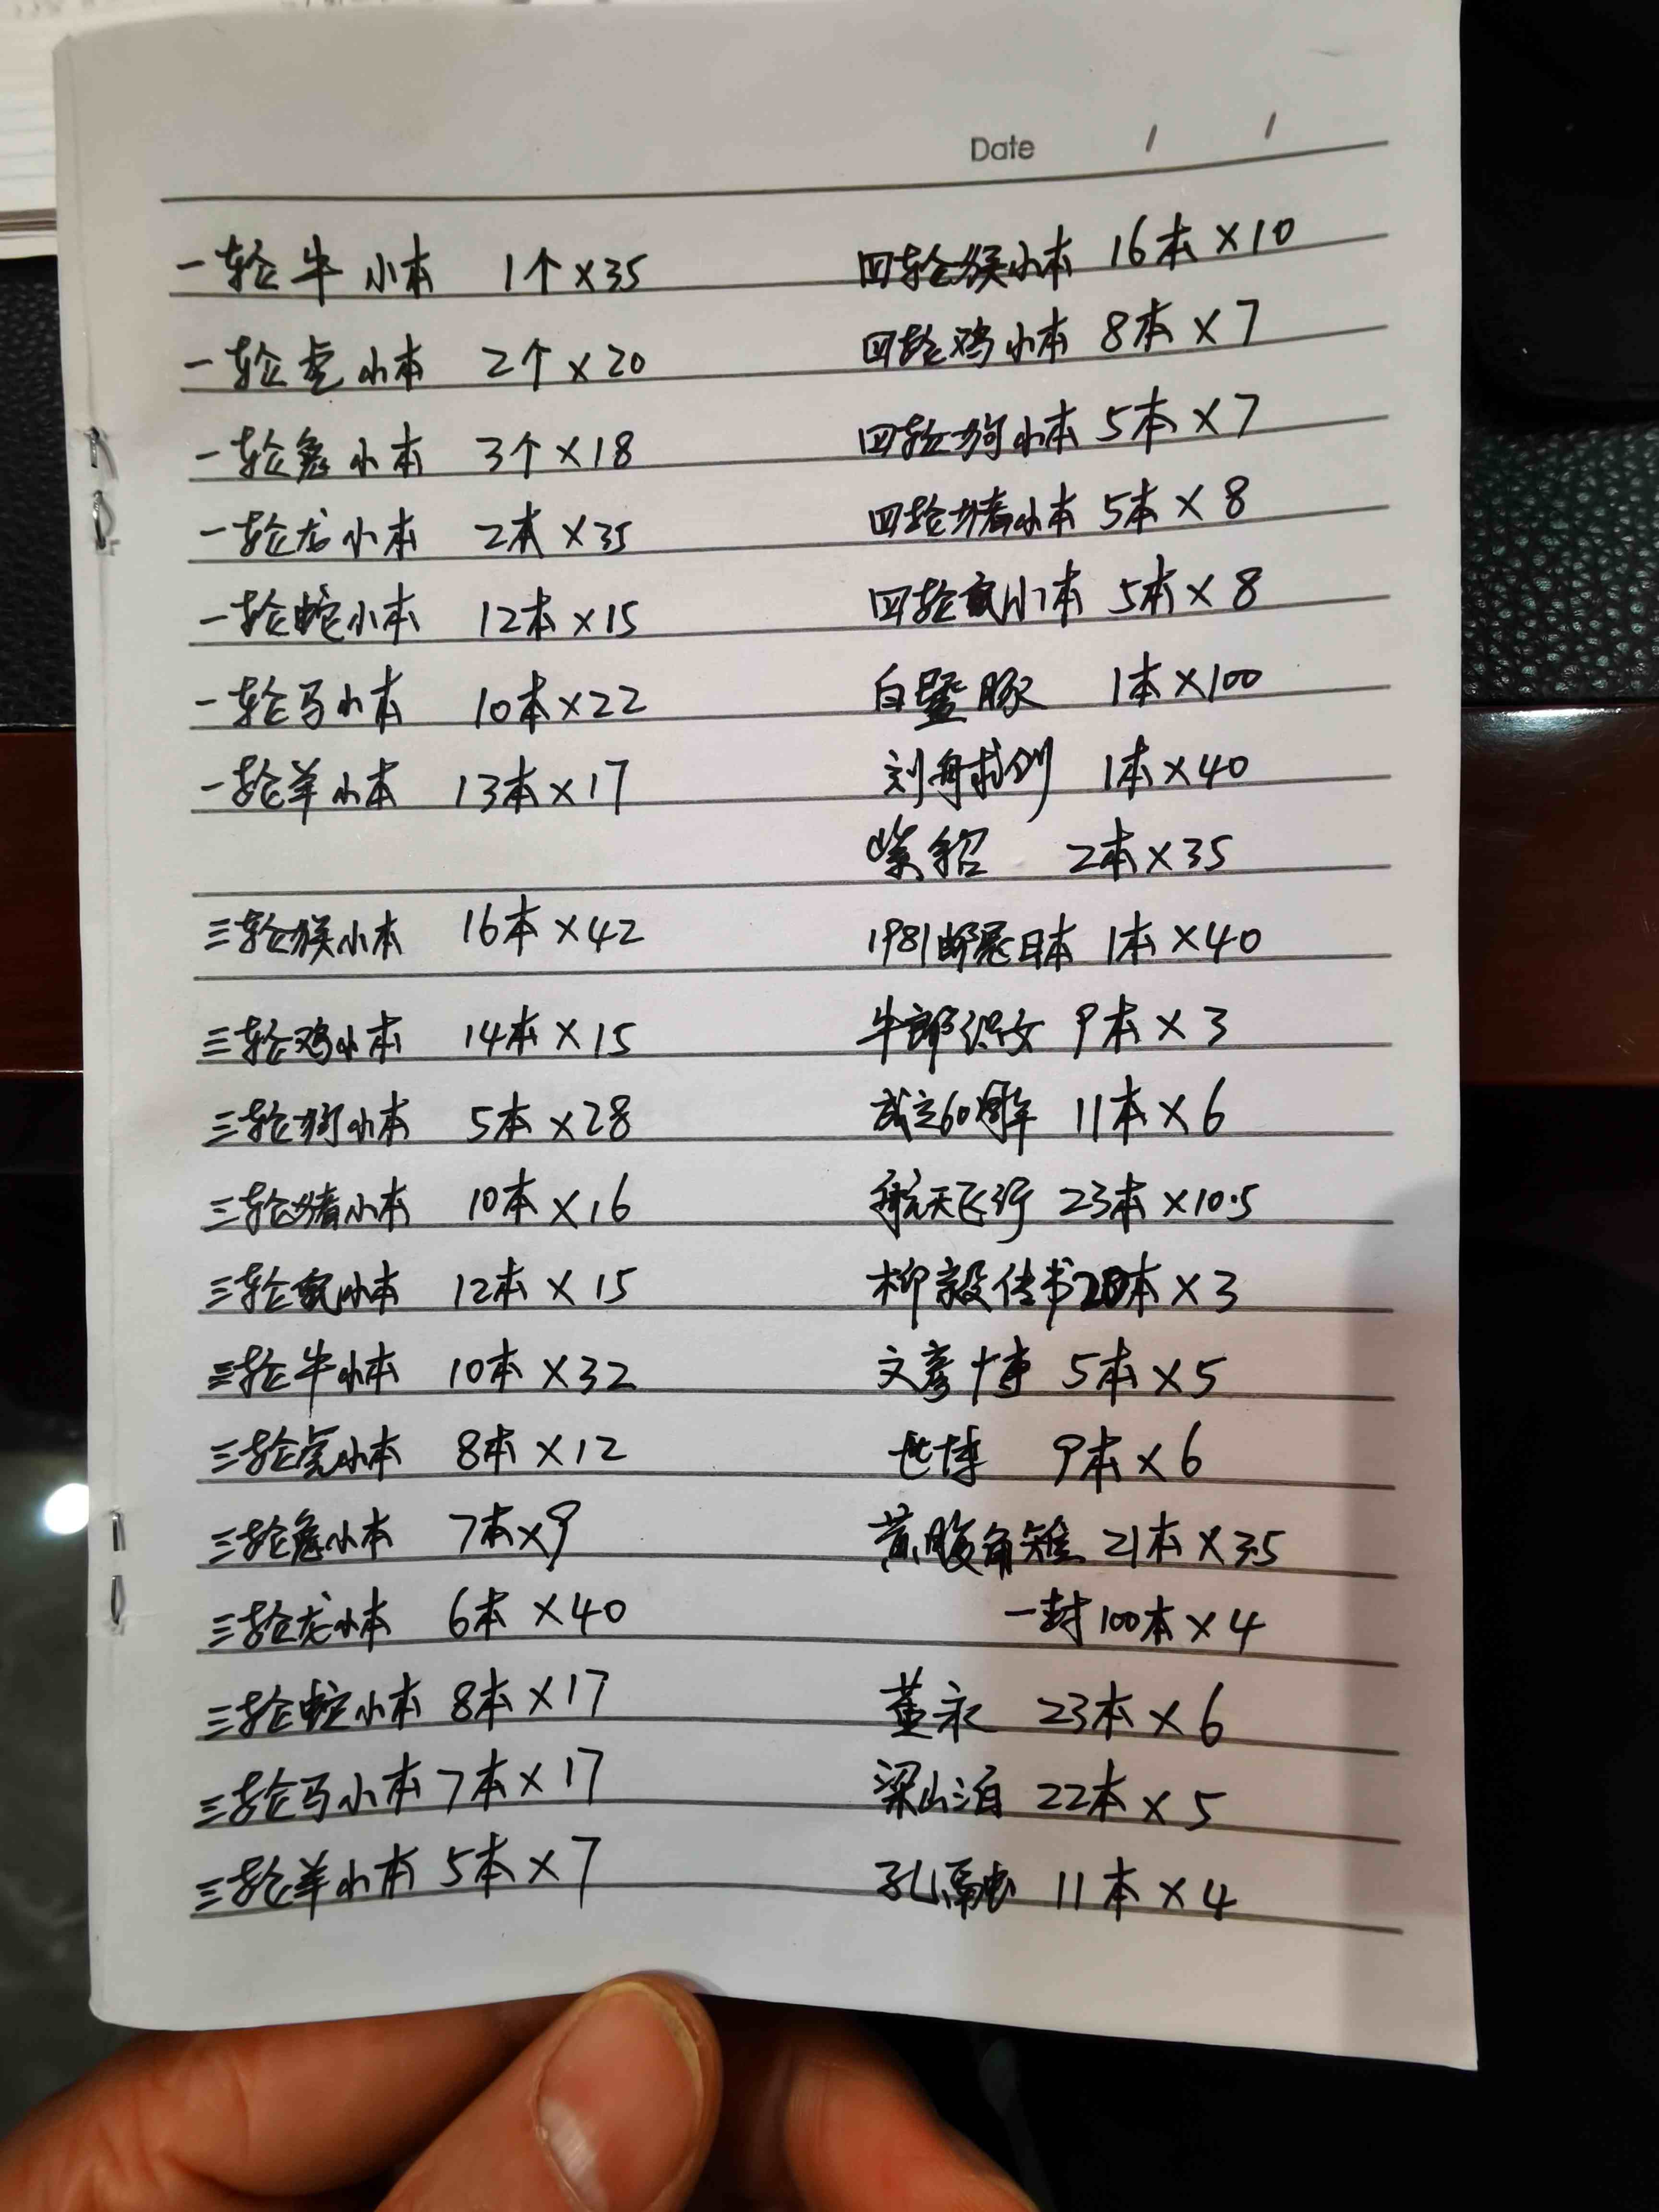 Date / /
一轮牛小本 1个×35
一轮虎小本 2个×20
一轮兔小本 3个×18
一轮龙小本 2本×35
一轮蛇小本 12本×15
一轮马小本 10本×22
一轮羊小本 13本×17
三轮猴小本 16本×42
三轮鸡小本 14本×15
三轮狗小本 5本×28
三轮猪小本 10本×16
三轮鼠小本 12本×15
三轮牛小本 10本×32
三轮虎小本 8本×12
三轮兔小本 7本×9
三轮龙小本 6本×40
三轮蛇小本 8本×17
三轮马小本 7本×17
三轮羊小本 5本×7
四轮猴小本 16本×10
四轮鸡小本 8本×7
四轮狗小本 5本×7
四轮猪小本 5本×8
四轮鼠小本 5本×8
白暨豚 1本×100
刘舟求剑 1本×40
紫貂 2本×35
1981邮展日本 1本×40
牛郎织女 9本×3
成立60周年 11本×6
航天飞行 23本×10.5
柳毅传书 20本×3
文彦博 5本×5
世博 9本×6
黄腹角雉 21本×3.5
一封100本×4
董永 23本×6
梁山泊 22本×5
孔融 11本×4